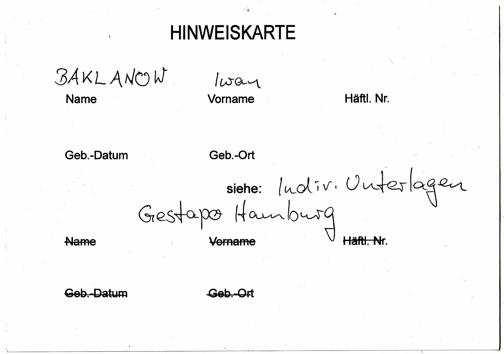 HINWEISKARTE
BAKLANOW Iwan
Name Vorname Häftl. Nr.
Geb.-Datum Geb.-Ort
siehe: Indiv. Unterlagen
Gestapo Hamburg
Name Vorname Häftl. Nr.
Geb.-Datum Geb.-Ort